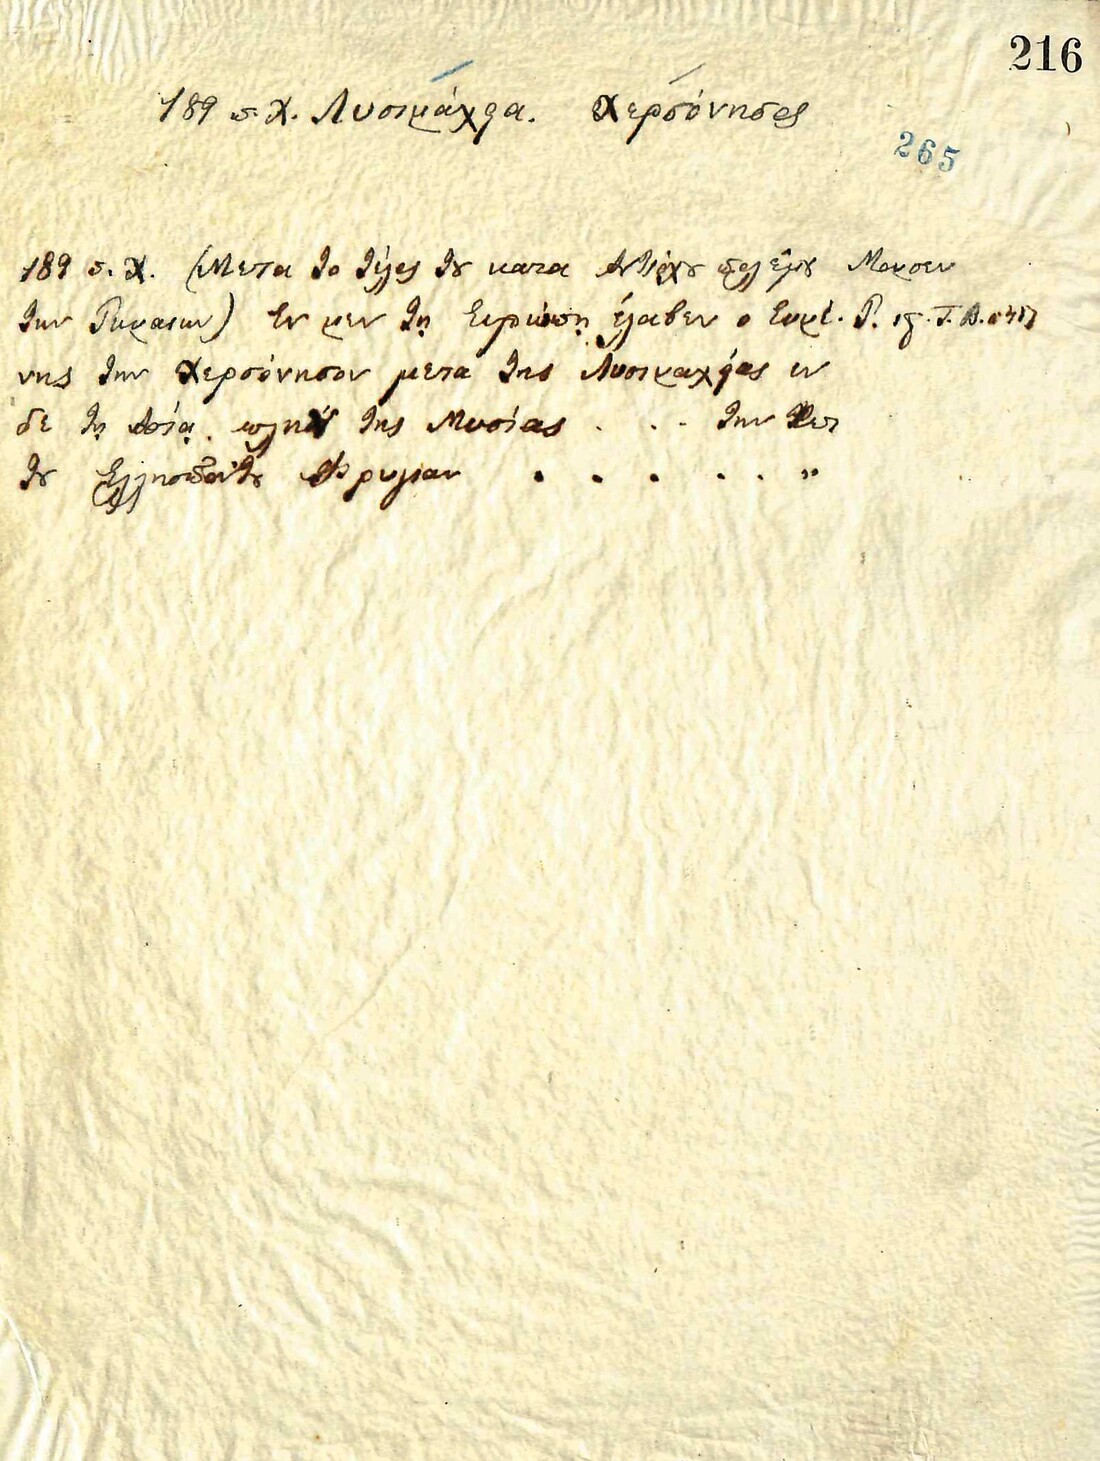 216
189 π. Χ. Λυσιμάχια. Χερσόνησος
265
189 π. Χ. (Μετα το τέλος του κατα Αντιόχου πολέμου Μομσεν
των Ρωμαιων) Εν μεν τη Ευρώπη έλαβεν ο Ευμέ- Ρ. ιϛ. Τ. Β.
νης την Χερσόνησον μετα της Λυσιμαχίας εν
δε τη Ασία, πλην της Μυσίας . . . την
του Ελλησπόντου Φρυγίαν . . . . . "